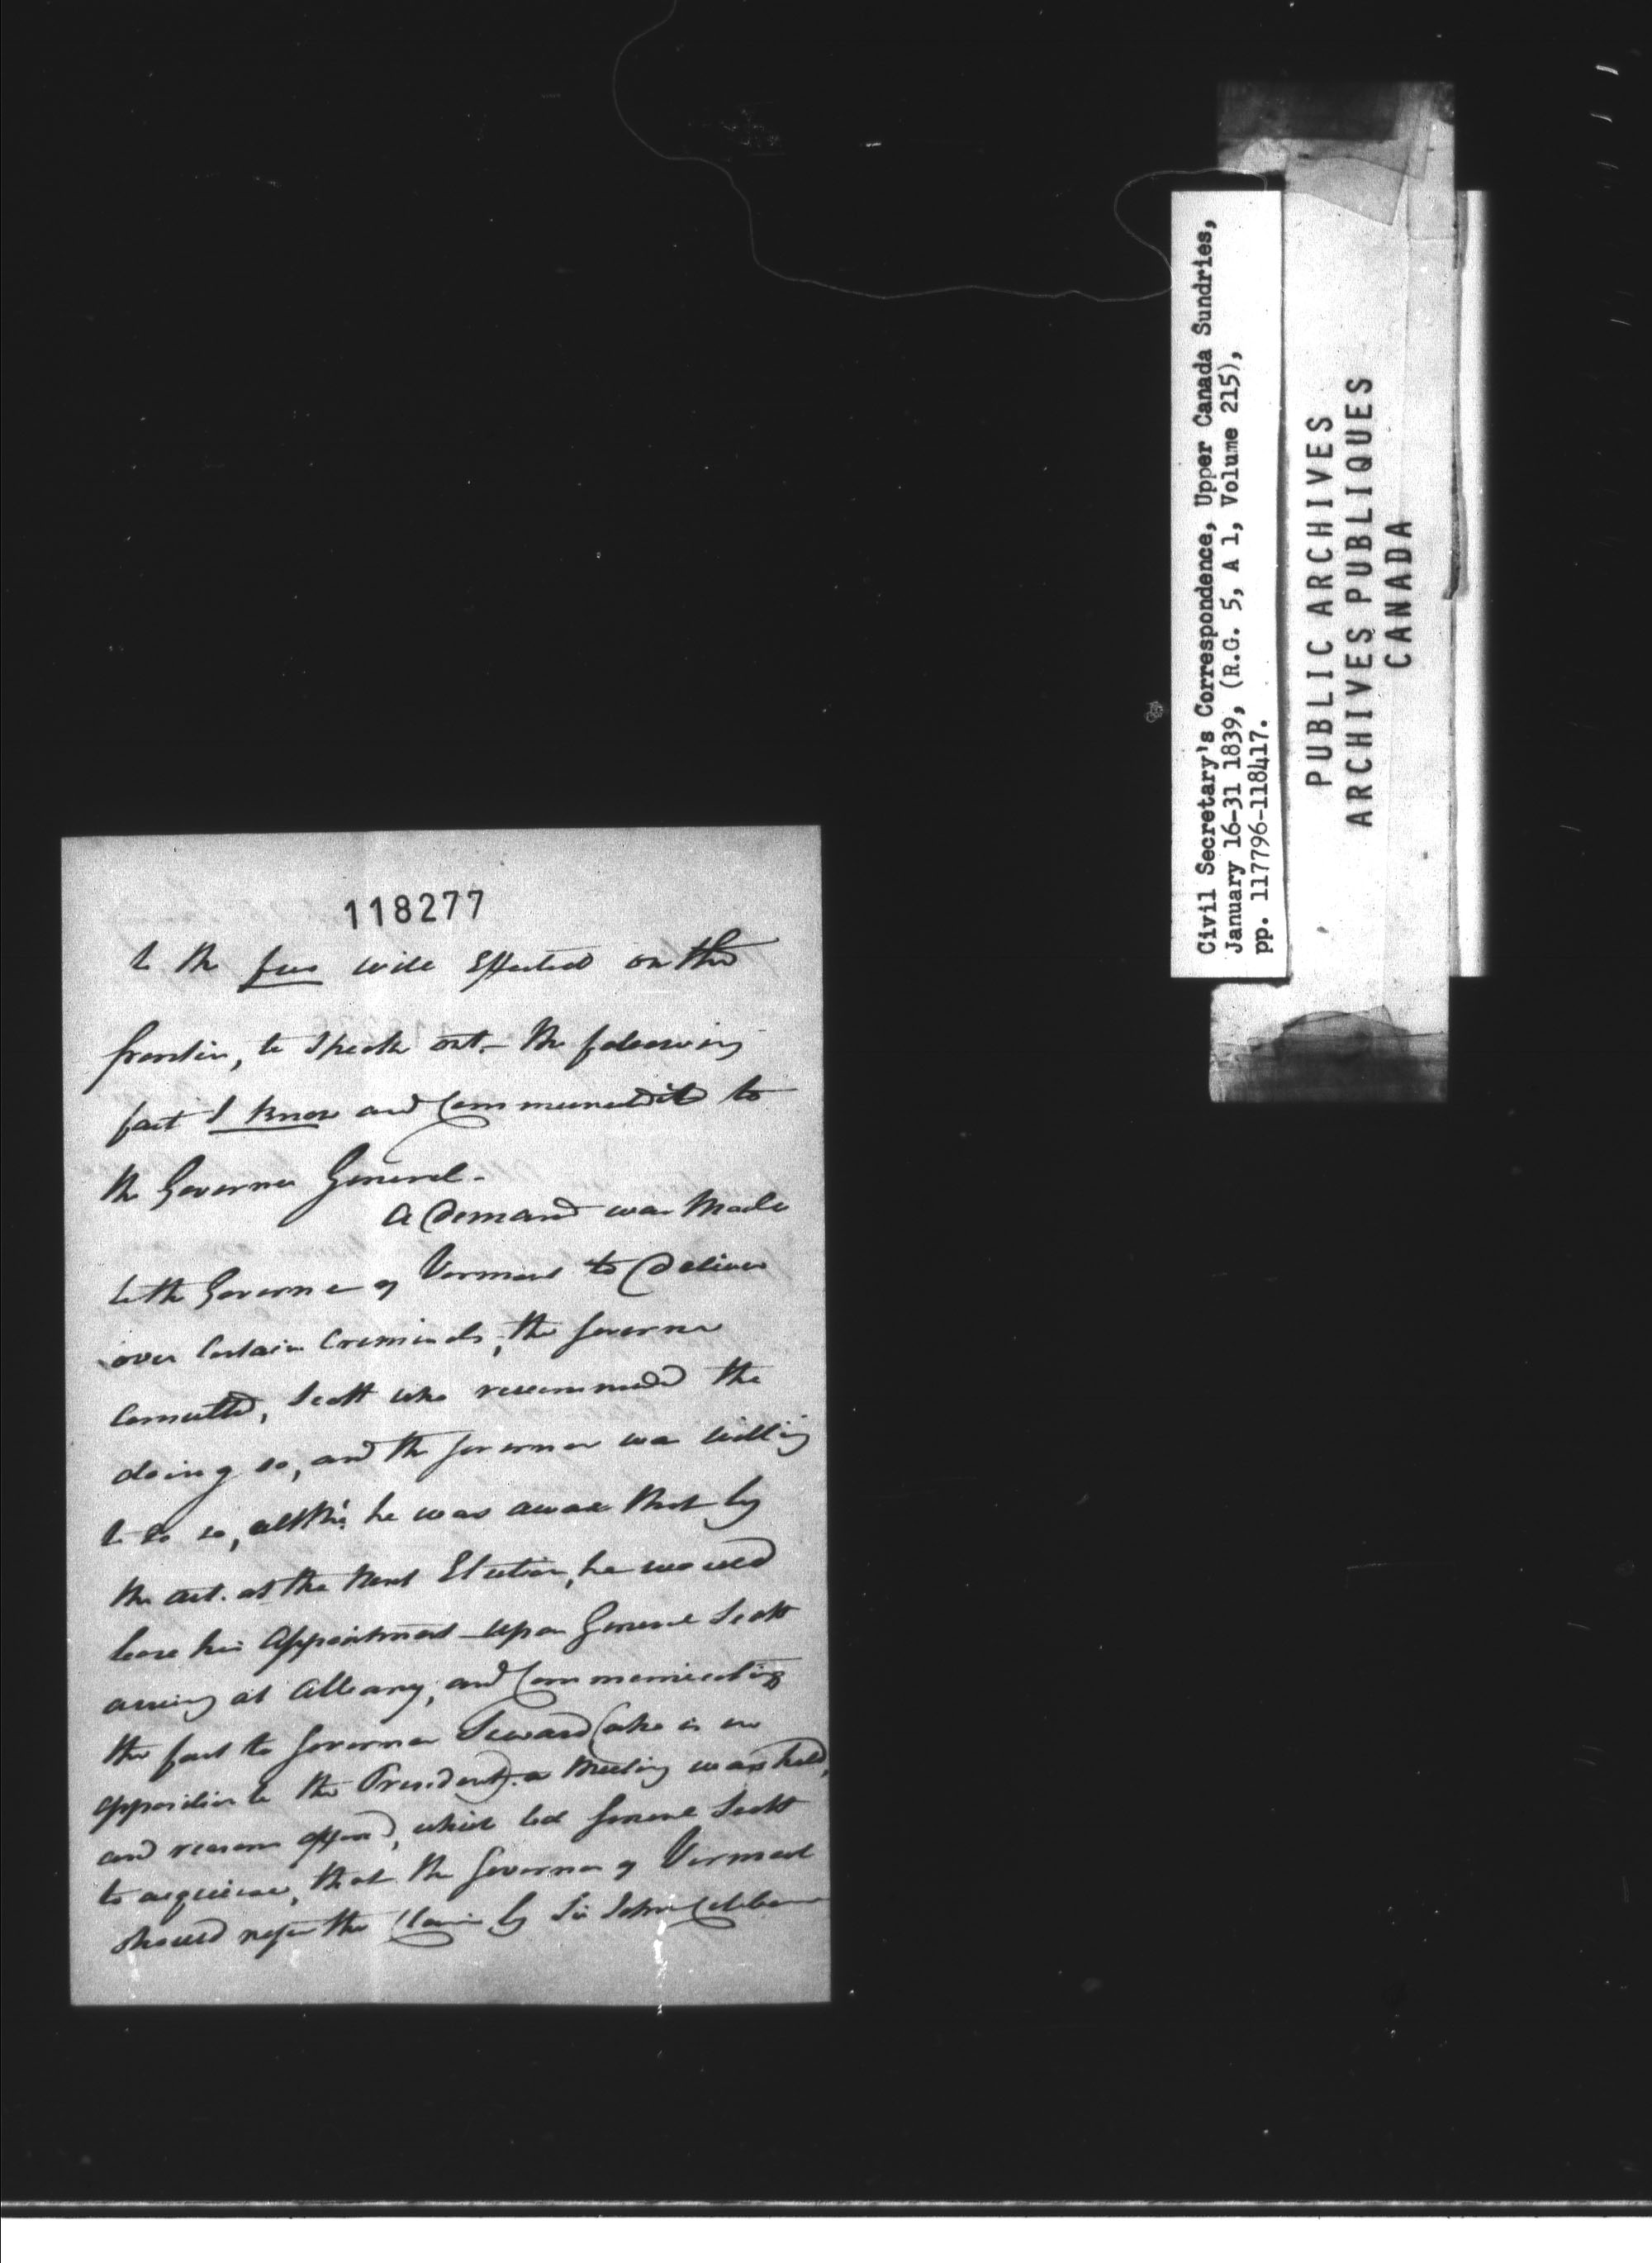 118277
to the few well affected on the
frontier, to speak out - the following
fact I know and Communicated it to
the Governor General.
A Demand was Made
to the Governor of Vermont to Deliver
over Certain Criminals, the Governor
Consulted, Scott who recommended the
doing so, and the Governor was willing
to do so, altho' he was aware that by
the act. at the Next Election, he would
lose his Appointment - upon General Scott
arriving at Albany, and Communicating
the fact to Governor Seward (who is in
opposition to the President) a Meeting was held,
and reasons offered, which led General Scott
to acquiesce, that the Governor of Vermont
should refuse the Claim by Sir John Colborne
Civil Secretary's Correspondence, Upper Canada Sundries,
January 16-31 1839, (R.G. 5, A 1, Volume 215),
pp. 117796-118417.
PUBLIC ARCHIVES
ARCHIVES PUBLIQUES
CANADA